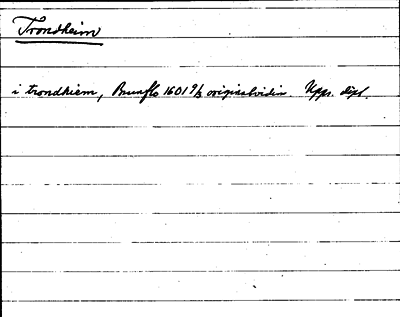 Trondheim
i trondhiem, Brunflo 1601 9/3 originalvidin Upps. dipl.